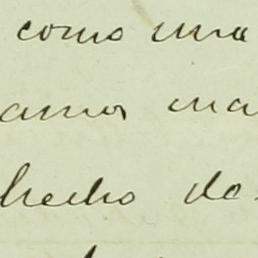 como una
amos ma
hecho do